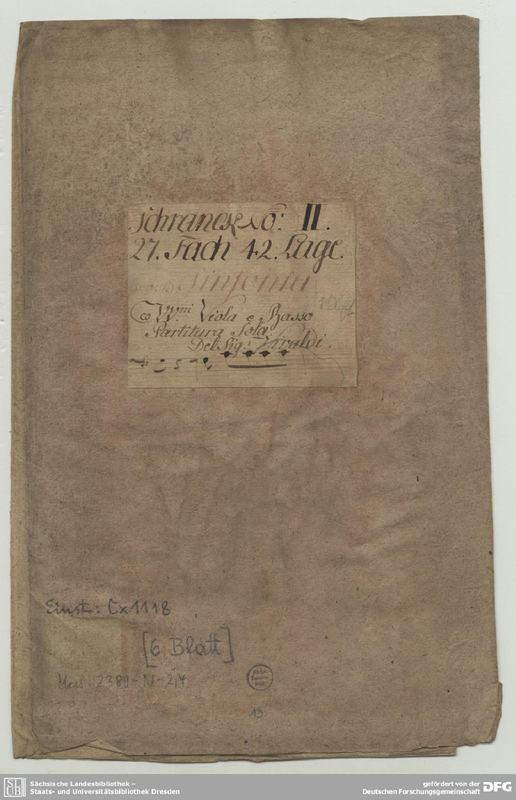 Schranck No: II.
27. Fach 42. Lage.
Sinfonia
Co VV.ni Viola e Basso
Partitura Sola
Del Sig: Vivaldi.
Einst: Cx 1118
[6 Blatt]
Mus. 2389-N-2,4
13
SLUB
Sächsische Landesbibliothek –
Staats- und Universitätsbibliothek Dresden
gefördert von der
Deutschen Forschungsgemeinschaft
DFG